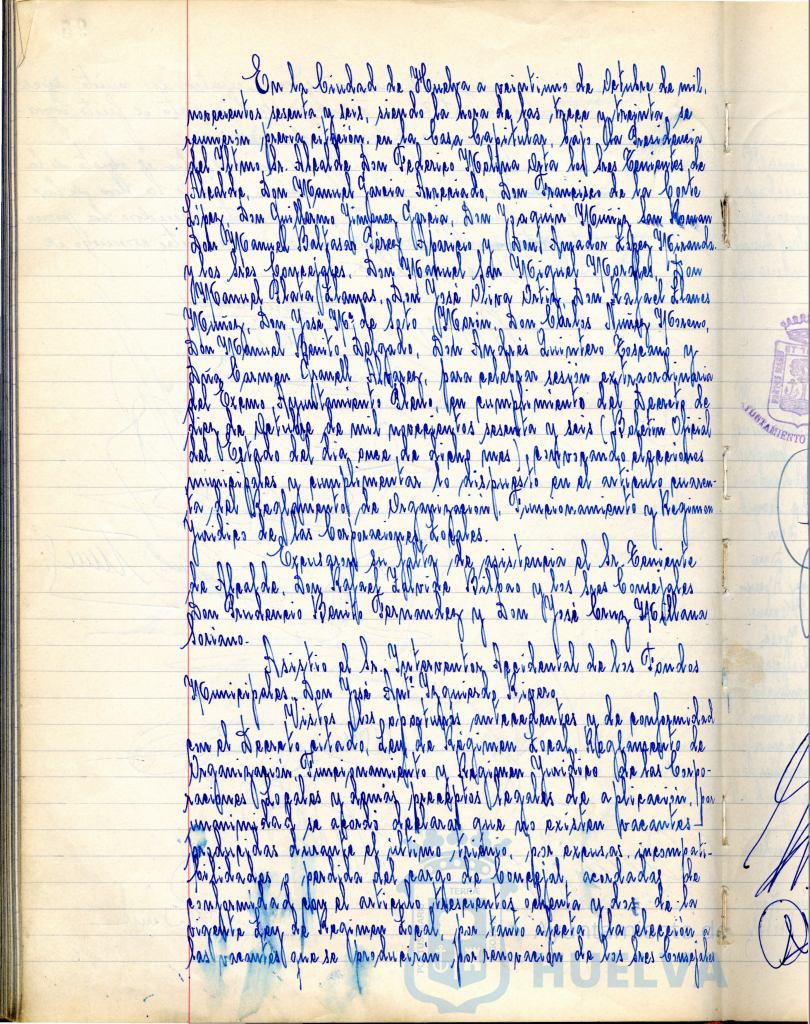 En la Ciudad de Huelva a veintiuno de Octubre de mil
novecientos sesenta y seis, siendo la hora de las trece y treinta, se
reunieron previa citación en la Casa Capitular, bajo la Presidencia
del Iltmo. Sr. Alcalde Don Federico Molina Orta los Sres Tenientes de
Alcalde, Don Manuel García Don Francisco de la Corte
López, Don Guillermo Jiménez García, Don Joaquín Muniz San Roman
Don Manuel Baltasar Pérez Aparicio y Don Amador López Miranda
y los Sres Concejales, Don Manuel San Miguel Morales, Don
Manuel Plata Llamas, Don José Oliva Ortiz, Don Rafael Llanes
Muñoz, Don José Mª de Soto Marin, Don Carlos Núñez Moreno,
Don Manuel Benito Delgado, Don Andrés Quintero Toscano y
Dña Carmen Alvarez, para celebrar sesión extraordinaria
del Excmo Ayuntamiento Pleno, en cumplimiento del Decreto de
diez de Octubre de mil novecientos sesenta y seis (Boletín Oficial
del Estado del día once de dicho mes), convocando elecciones
municipales y cumplimentar lo dispuesto en el artículo cuaren-
ta del Reglamento de Organización, Funcionamiento y Regimen
Jurídico de las Corporaciones Locales.
Excusaron su falta de asistencia el Sr. Teniente
de Alcalde, Don Rafael Bilbao y los Sres Concejales
Don Prudencio Benito Fernandez y Don José Cruz Millana
Soriano.
Asistió el Sr. Interventor Accidental de los Fondos
Municipales, Don José Antº Izquierdo Rivero.
Vistos los oportunos antecedentes y de conformidad
con el Decreto citado, Ley de Regimen Local, Reglamento de
Organización, Funcionamiento y Regimen Jurídico de las Corpo-
raciones Locales y demás preceptos legales de aplicación, por
unanimidad se acordó declarar que no existen vacantes
producidas durante el último trienio, por excusas, incompati-
bilidades o perdida del cargo de Concejal acordadas de
conformidad con el artículo trescientos ochenta y dos de la
vigente Ley de Regimen Local, por tanto afecta la elección a
las vacantes que se produciran por renovación de los Sres Concejales
HUELVA
AYUNTAMIENTO